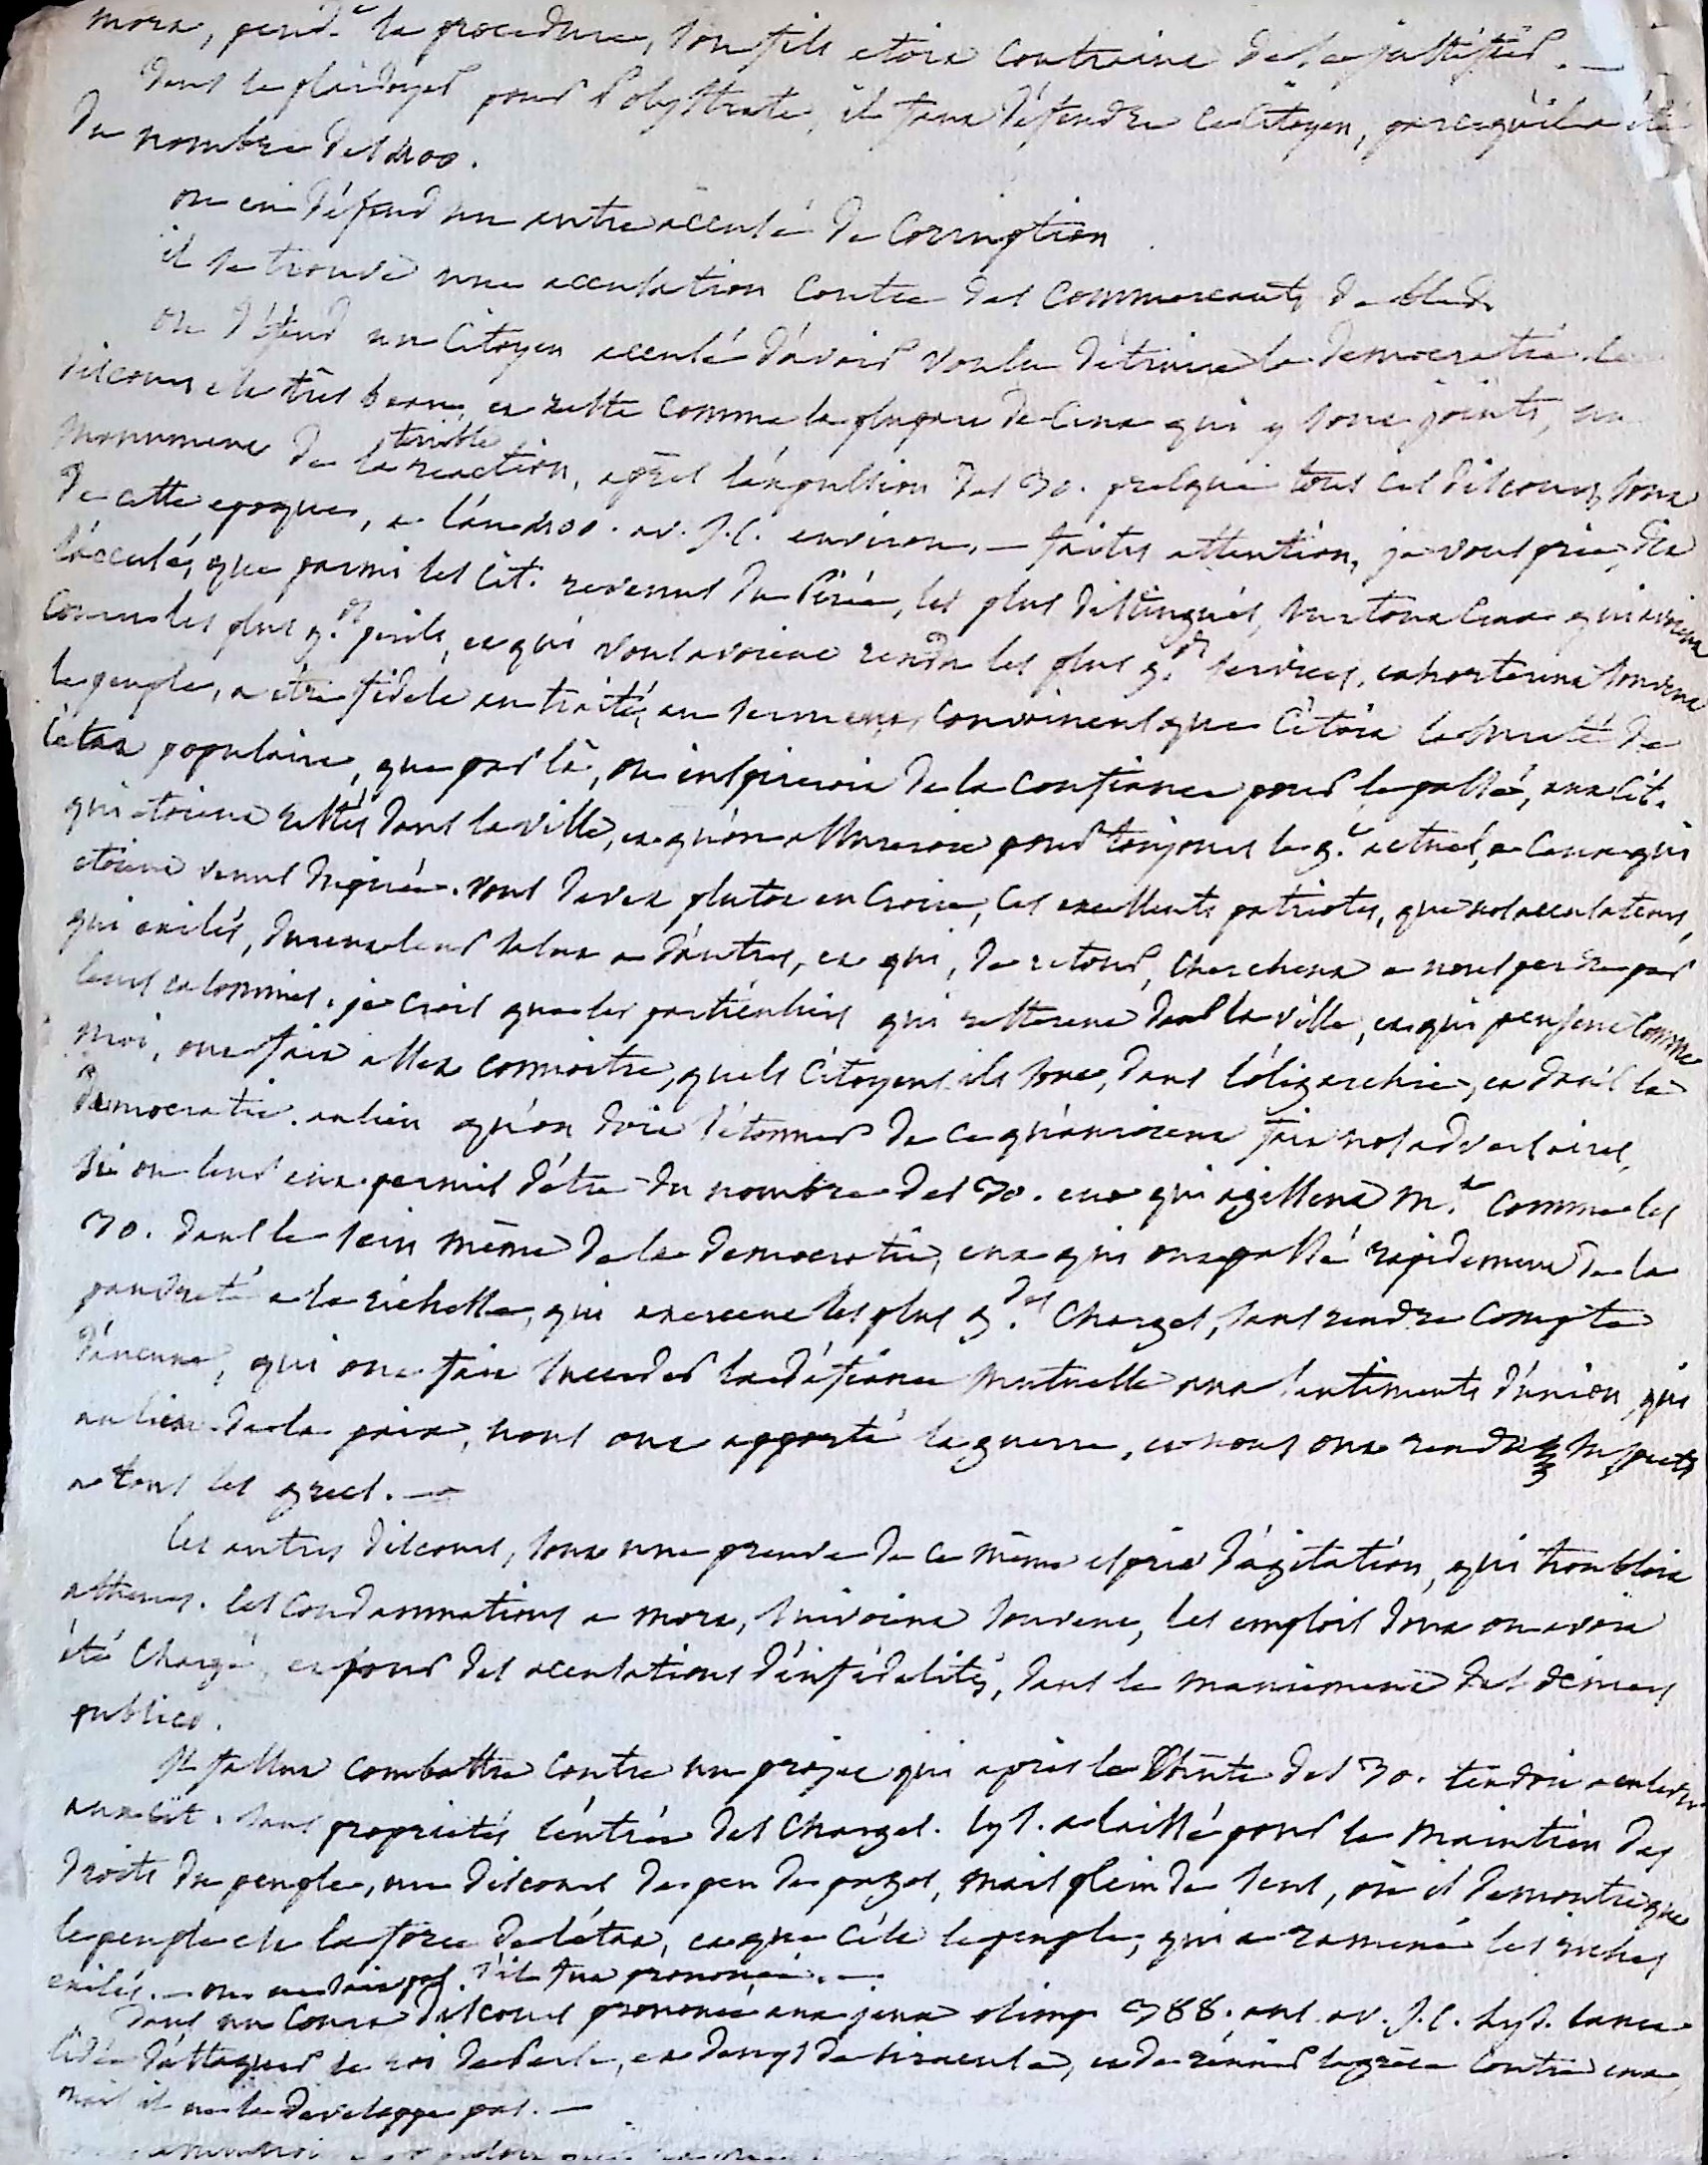 mort, pend.t la procedure, son fils etoit contraint de se justifier. —
dans le plaidoyer pour Polystrate, il faut défendre ce Citoyen, parcequ'il a été
du nombre des 400.
on en défend un autre accusé de Corruption
il se trouve une accusation contre des Commercants de bleds
on défend un Citoyen accusé d'avoir voulu détruire la democratie. le
discours est très beau, et reste comme la plupart de Ceux qui y sont joints, un
monument de la terrible reaction, après l'expulsion des 30. presque tous ces discours sont
de cette epoque, a l'an 400. av. J.C. environ. — faites attention, je vous prie, dit
l'accusé, que parmi les Cit. revenus du Pirée, les plus distingués, surtout Ceux qui avoient
couru les plus g.ds perils, et qui vous avoient rendu les plus g.ds services, exhorterent souvent
le peuple, a etre fidele au traité, au serment, convaincus que C'étoit la sureté de
l'état populaire, que par là, on inspireroit de la confiance pour le passé, aux Cit.
qui etoient restés dans la ville, et qu'on assureroit pour toujours le g.t actuel, a Ceux qui
etoient venus du pirée. vous devez plutot en Croire, Ces excellents patriotes, que nos accusateurs,
qui exilés, durent leur salut a d'autres, et qui, de retour, cherchent a nous perdre par
leurs calomnies. je crois que les particuliers qui resterent dans la ville, et qui pensent comme
moi, ont fait assez connoitre, quels Citoyens ils sont, dans l'oligarchie, et dans la
democratie. au lieu qu'on doit s'étonner de ce qu'auroient fait nos adversaires,
si on leur eut permis d'être du nombre des 30. eux qui agissent m.t comme les
30. dans le sein même de la democratie, eux qui ont passé rapidement de la
pauvreté a la richesse, qui exercent les plus g.des Charges, sans rendre compte
d'aucune, qui ont fait succeder la défiance mutuelle aux sentiments d'union, qui
au lieu de la paix, nous ont apporté la guerre, et nous ont rendus suspects
a tous les grecs. —
les autres discours, sont une preuve de ce même esprit d'agitation, qui troubloit
athenes. les Condamnations a mort, suivoient souvent, les emplois dont on avoit
été Chargé, et pour des accusations d'infidelités, dans le maniement des deniers
publics.
Il fallut combattre contre un projet qui après la Chûte des 30. tendoit a enlever
aux Cit. sans proprietés l'entrée des Charges. lys. a laissé pour le maintien des
droits du peuple, un discours de peu de pages, mais plein de sens, où il demontre que
le peuple est la force de l'état, et que c'est le peuple, qui a ramené les riches
exilés. — on ne sait pas s'il fut prononcé. —
dans un Court discours prononcé aux jeux olimp. 388. ans av. J.C. Lys. lance
l'idée d'attaquer le roi de Perse, et denys de siracuse, et de réunir la grèce contre eux,
mais il ne la developpe pas. —